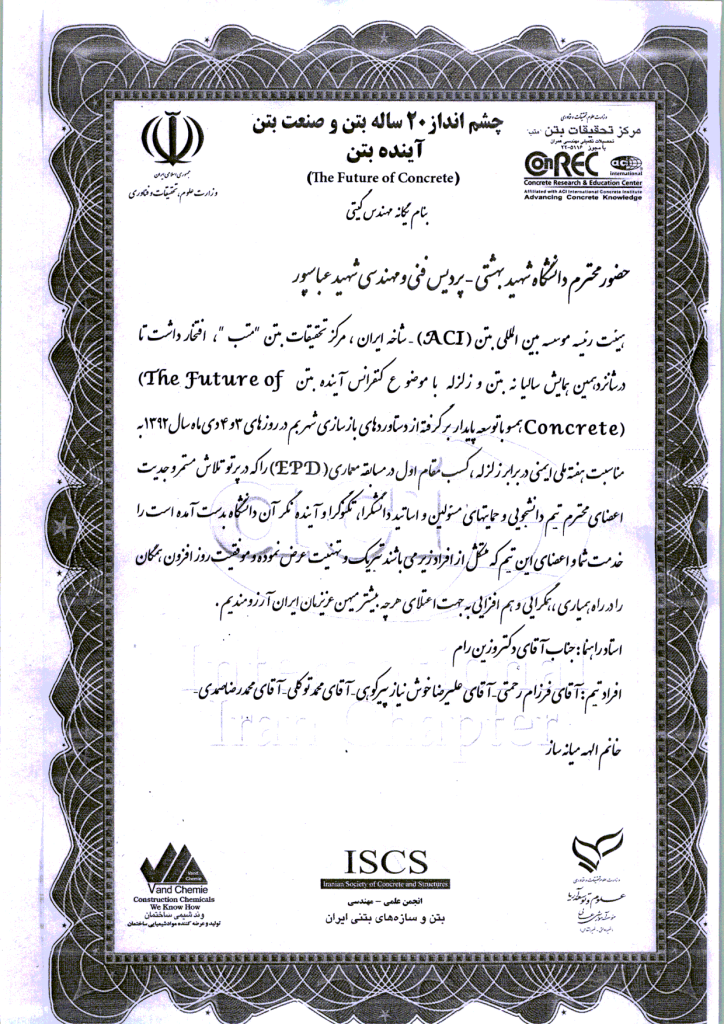 چشم انداز ۲۰ ساله بتن و صنعت بتن
آینده بتن
(The Future of Concrete)
بنام یگانه مهندس گیتی
جمهوری اسلامی ایران
وزارت علوم، تحقیقات و فناوری
وزارت علوم تحقیقات و فناوری
مرکز تحقیقات بتن "متب"
تحصیلات تکمیلی مهندسی عمران
با مجوز ۲۲-۵۱۱۶
ConREC aci International
Concrete Research & Education Center
Affiliated with ACI International Concrete Institute
Advancing Concrete Knowledge
حضور محترم دانشگاه شهید بهشتی - پردیس فنی و مهندسی شهید عباسپور
هیئت رئیسه موسسه بین المللی بتن (ACI) - شاخه ایران ، مرکز تحقیقات بتن "متب "، افتخار داشت تا
در شانزدهمین همایش سالیانه بتن و زلزله با موضوع کنفرانس آینده بتن (The Future of
Concrete) همسو با توسعه پایدار برگرفته از دستاوردهای بازسازی شهر بم در روزهای ۳ و ۴ دی ماه سال ۱۳۹۲ به
مناسبت هفته ملی ایمنی در برابر زلزله ، کسب مقام اول در مسابقه معماری (EPD) را که در پرتو تلاش مستمر و جدیت
اعضای محترم تیم دانشجویی و حمایتهای مسئولین و اساتید دانشگرا، تکنوگرا و آینده نگر آن دانشگاه بدست آمده است را
خدمت شما و اعضای این تیم که متشکل از افراد زیر می باشند تبریک و تهنیت عرض نموده و موفقیت روز افزون همگان
را در راه همیاری ، همگرایی و هم افزایی به جهت اعتلای هرچه بیشتر میهن عزیزمان ایران آرزومندیم .
استاد راهنما : جناب آقای دکتر وزین رام
افراد تیم : آقای فرزام رحمتی - آقای علیرضا خوش نیاز پیرکوهی - آقای محمد توکلی - آقای محمدرضا صمدی -
خانم الهه میانه ساز
International
Iran Chapter
Vand Chemie
Vand Chemie
Construction Chemicals
We Know How
وند شیمی ساختمان
تولید و عرضه کننده مواد شیمیایی ساختمان
ISCS
Iranian Society of Concrete and Structures
انجمن علمی - مهندسی
بتن و سازه‌های بتنی ایران
وزارت علوم تحقیقات و فناوری